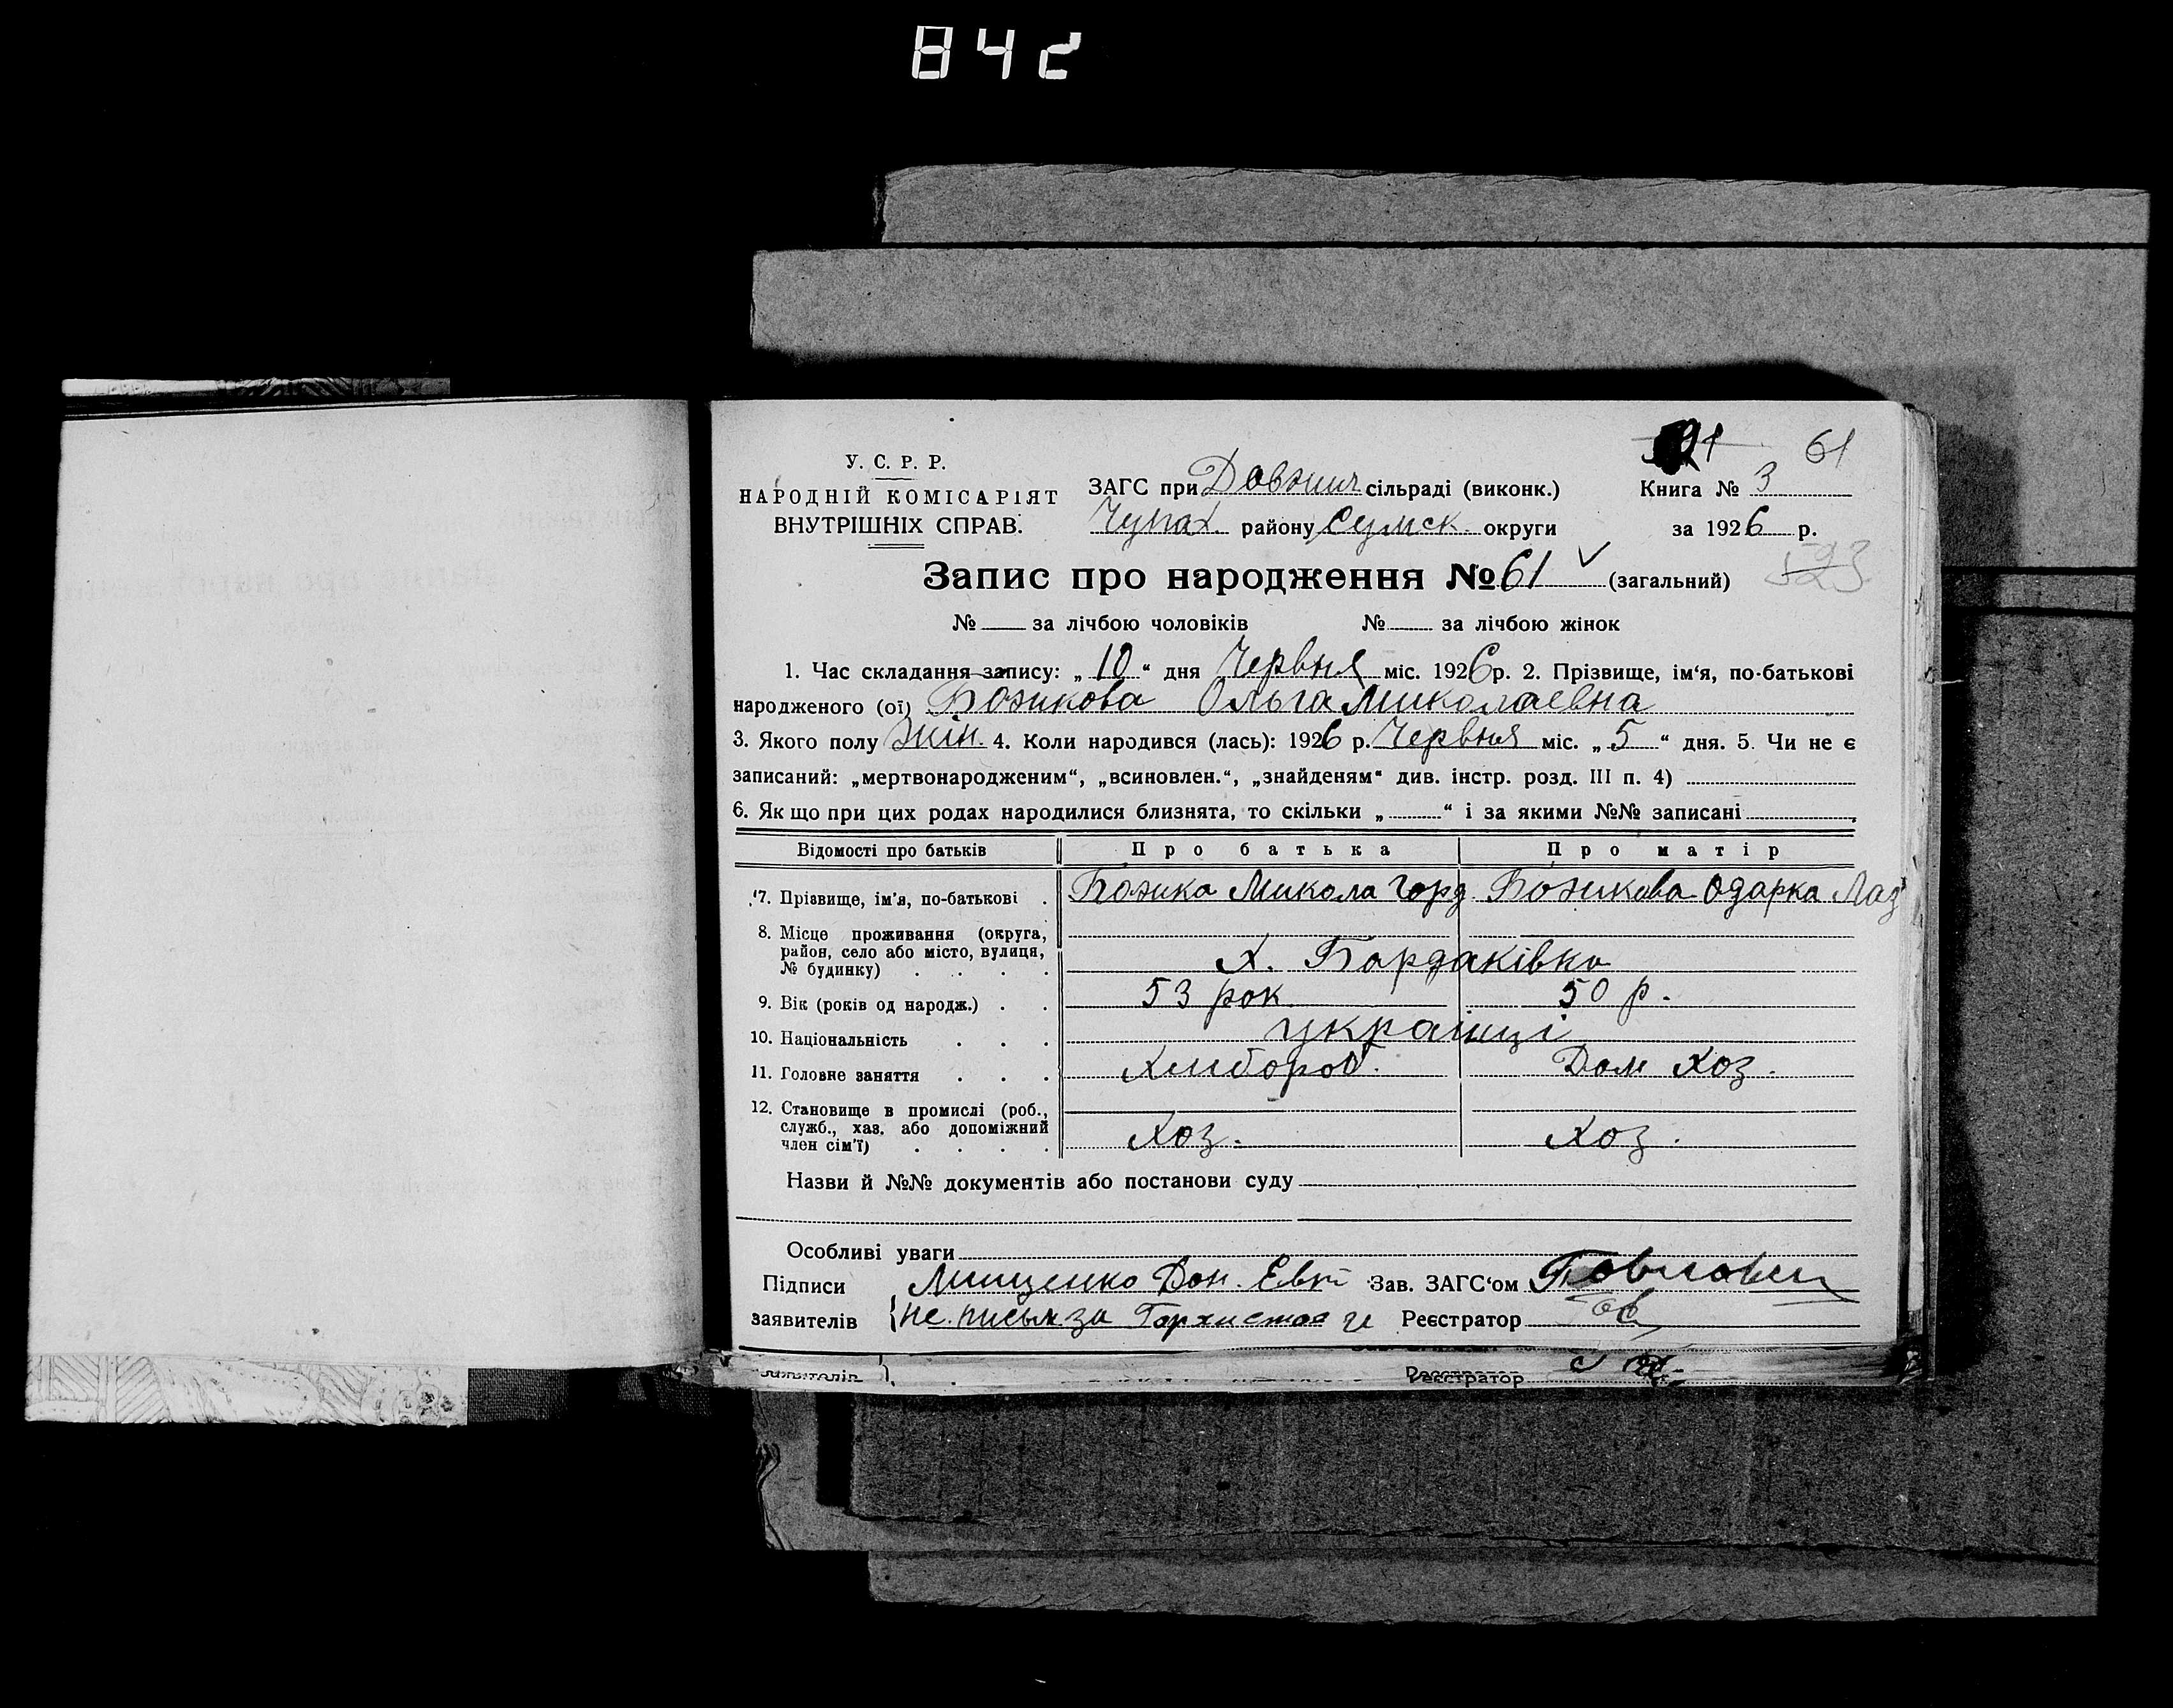 842
61
У. С. Р. Р.
НАРОДНІЙ КОМІСАРІЯТ
ВНУТРІШНІХ СПРАВ.
ЗАГС при Довжич сільраді (виконк.)
Чупах. району Сумск. округи
Книга № 3
за 1926 р.
523
Запис про народження № 61 (загальний)
№ за лічбою чоловіків № за лічбою жінок
1. Час складання запису: „ 10 “ дня Червня міс. 1926 р. 2. Прізвище, ім‘я, по-батькові
народженого (ої) Божикова Ольга Миколаевна
3. Якого полу Жін. 4. Коли народився (лась): 1926 р. Червня міс. „ 5 “ дня. 5. Чи не є
записаний: „мертвонародженим“, „всиновлен.“, „знайденям“ див. інстр. розд. III п. 4)
6. Як що при цих родах народилися близнята, то скільки „ “ і за якими №№ записані
Відомості про батьків Про батька Про матір
7. Прізвище, ім'я, по-батькові Божика Микола Горд. Божикова Одарка Лаз
8. Місце проживання (округа,
район, село або місто, вулиця,
№ будинку) Х. Бардаківка
9. Вік (років од народж.) 53 рок. 50 р.
10. Національність українці
11. Головне заняття Хлібороб. Дом хоз.
12. Становище в промислі (роб.,
служб., хаз. або допоміжний
член сім'ї) Хоз. Хоз.
Назви й №№ документів або постанови суду
Особливі уваги
Підписи Мищенко Дон. Зав. ЗАГС‘ом
заявителів {не. письм за Реєстратор
заявителів
Реєстратор